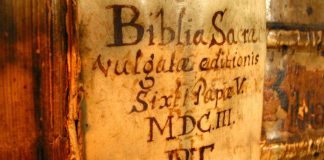 Biblia Sacra
Vulgatæ editionis
Sixti Papæ V.
MDCIII.